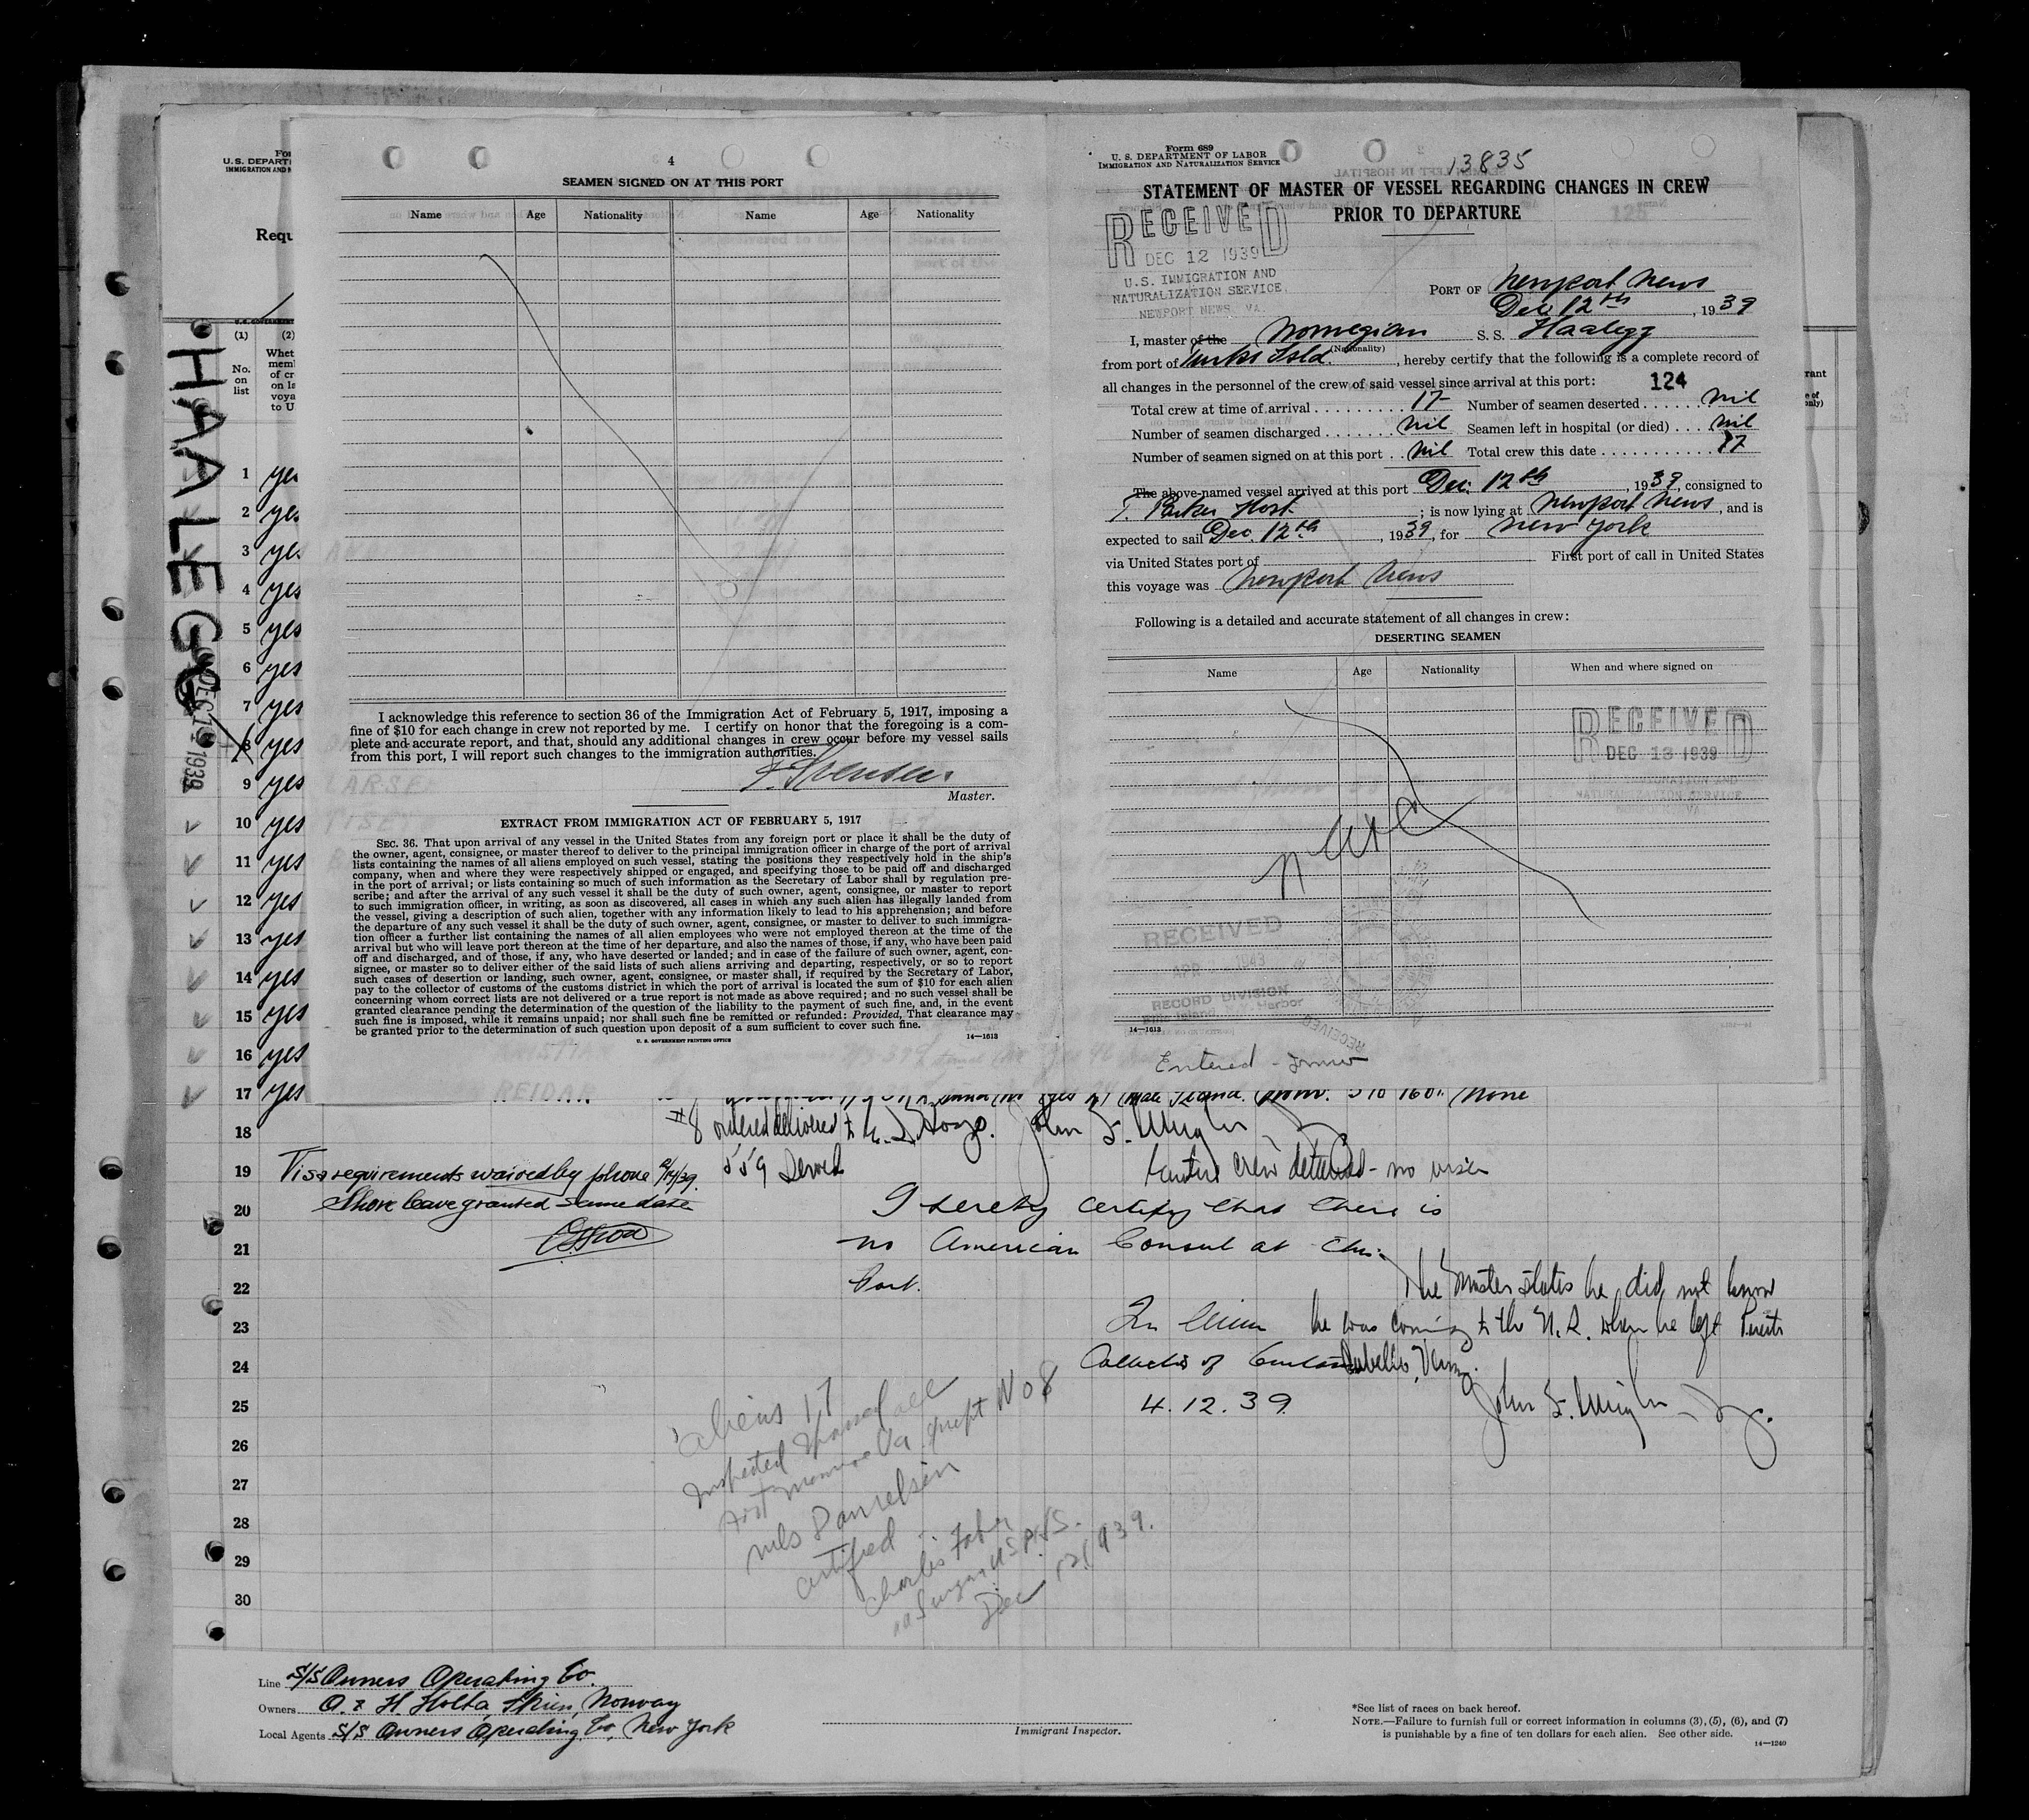 4
SEAMEN SIGNED ON AT THIS PORT
Name Age Nationality Name Age Nationality
I acknowledge this reference to section 36 of the Immigration Act of February 5, 1917, imposing a
fine of $10 for each change in crew not reported by me. I certify on honor that the foregoing is a com-
plete and accurate report, and that, should any additional changes in crew occur before my vessel sails
from this port, I will report such changes to the immigration authorities.
Master.
EXTRACT FROM IMMIGRATION ACT OF FEBRUARY 5, 1917
SEC. 36. That upon arrival of any vessel in the United States from any foreign port or place it shall be the duty of
the owner, agent, consignee, or master thereof to deliver to the principal immigration officer in charge of the port of arrival
lists containing the names of all aliens employed on such vessel, stating the positions they respectively hold in the ship's
company, when and where they were respectively shipped or engaged, and specifying those to be paid off and discharged
in the port of arrival; or lists containing so much of such information as the Secretary of Labor shall by regulation pre-
scribe; and after the arrival of any such vessel it shall be the duty of such owner, agent, consignee, or master to report
to such immigration officer, in writing, as soon as discovered, all cases in which any such alien has illegally landed from
the vessel, giving a description of such alien, together with any information likely to lead to his apprehension; and before
the departure of any such vessel it shall be the duty of such owner, agent, consignee, or master to deliver to such immigra-
tion officer a further list containing the names of all alien employees who were not employed thereon at the time of the
arrival but who will leave port thereon at the time of her departure, and also the names of those, if any, who have been paid
off and discharged, and of those, if any, who have deserted or landed; and in case of the failure of such owner, agent, con-
signee, or master so to deliver either of the said lists of such aliens arriving and departing, respectively, or so to report
such cases of desertion or landing, such owner, agent, consignee, or master shall, if required by the Secretary of Labor,
pay to the collector of customs of the customs district in which the port of arrival is located the sum of $10 for each alien
concerning whom correct lists are not delivered or a true report is not made as above required; and no such vessel shall be
granted clearance pending the determination of the question of the liability to the payment of such fine, and, in the event
such fine is imposed, while it remains unpaid; nor shall such fine be remitted or refunded: Provided, That clearance may
be granted prior to the determination of such question upon deposit of a sum sufficient to cover such fine.
U. S. GOVERNMENT PRINTING OFFICE 14—1613
Form 689
U. S. DEPARTMENT OF LABOR
IMMIGRATION AND NATURALIZATION SERVICE
13835
STATEMENT OF MASTER OF VESSEL REGARDING CHANGES IN CREW
PRIOR TO DEPARTURE
RECEIVED
DEC 12 1939
U.S. IMMIGRATION AND
NATURALIZATION SERVICE,
NEWPORT NEWS, VA.
PORT OF Newport News
Dec 12th, 1939
I, master of the Norwegian S. S. Haalegg
(Nationality)
from port of Turks Isld., hereby certify that the following is a complete record of
all changes in the personnel of the crew of said vessel since arrival at this port: 124
Total crew at time of arrival 17 Number of seamen deserted nil
Number of seamen discharged nil Seamen left in hospital (or died) nil
Number of seamen signed on at this port nil Total crew this date 17
The above-named vessel arrived at this port Dec. 12th, 1939, consigned to
T. Parker Host; is now lying at Newport News, and is
expected to sail Dec. 12th, 1939, for New York
via United States port of First port of call in United States
this voyage was Newport News
Following is a detailed and accurate statement of all changes in crew:
DESERTING SEAMEN
Name Age Nationality When and where signed on
RECEIVED
DEC 13 1939
NATURALIZATION SERVICE
none
RECEIVED
RECORD DIVISION
14—1613
Entered
U. S. DEPART
IMMIGRATION AND N
Requ
(1) (2)
No. on list
Whet
mem
of cr
on la
voya
to U
HAALEGG
DEC 14 1939
1 yes
2 yes
3 yes
4 yes
5 yes
6 yes
7 yes
8 yes
9 yes
10 yes
11 yes
12 yes
13 yes
14 yes
15 yes
16 yes
17 yes REIDAR None
18 #8 ordered delivered to
19 Visa requirements waived by phone 12/14/39. 559 Served Entire crew detained - no visa
20 Shore leave granted same date I hereby certify that there is
21 no American Consul at this
22 Port. The Master states he did not know
23 he was coming to the U. S. when he left
24 Collector of Customs
25 4.12.39.
26
27
28
29
30
Aliens 17
Inspected & passed all
except No 8
Nils Danielsen
certified
Charles
Dec 12, 1939.
Line S/S Owners Operating Co.
Owners O. & H. Holta, Skien, Norway
Local Agents S/S Owners Operating Co, New York
Immigrant Inspector.
*See list of races on back hereof.
NOTE.—Failure to furnish full or correct information in columns (3), (5), (6), and (7)
is punishable by a fine of ten dollars for each alien. See other side.
14—1240